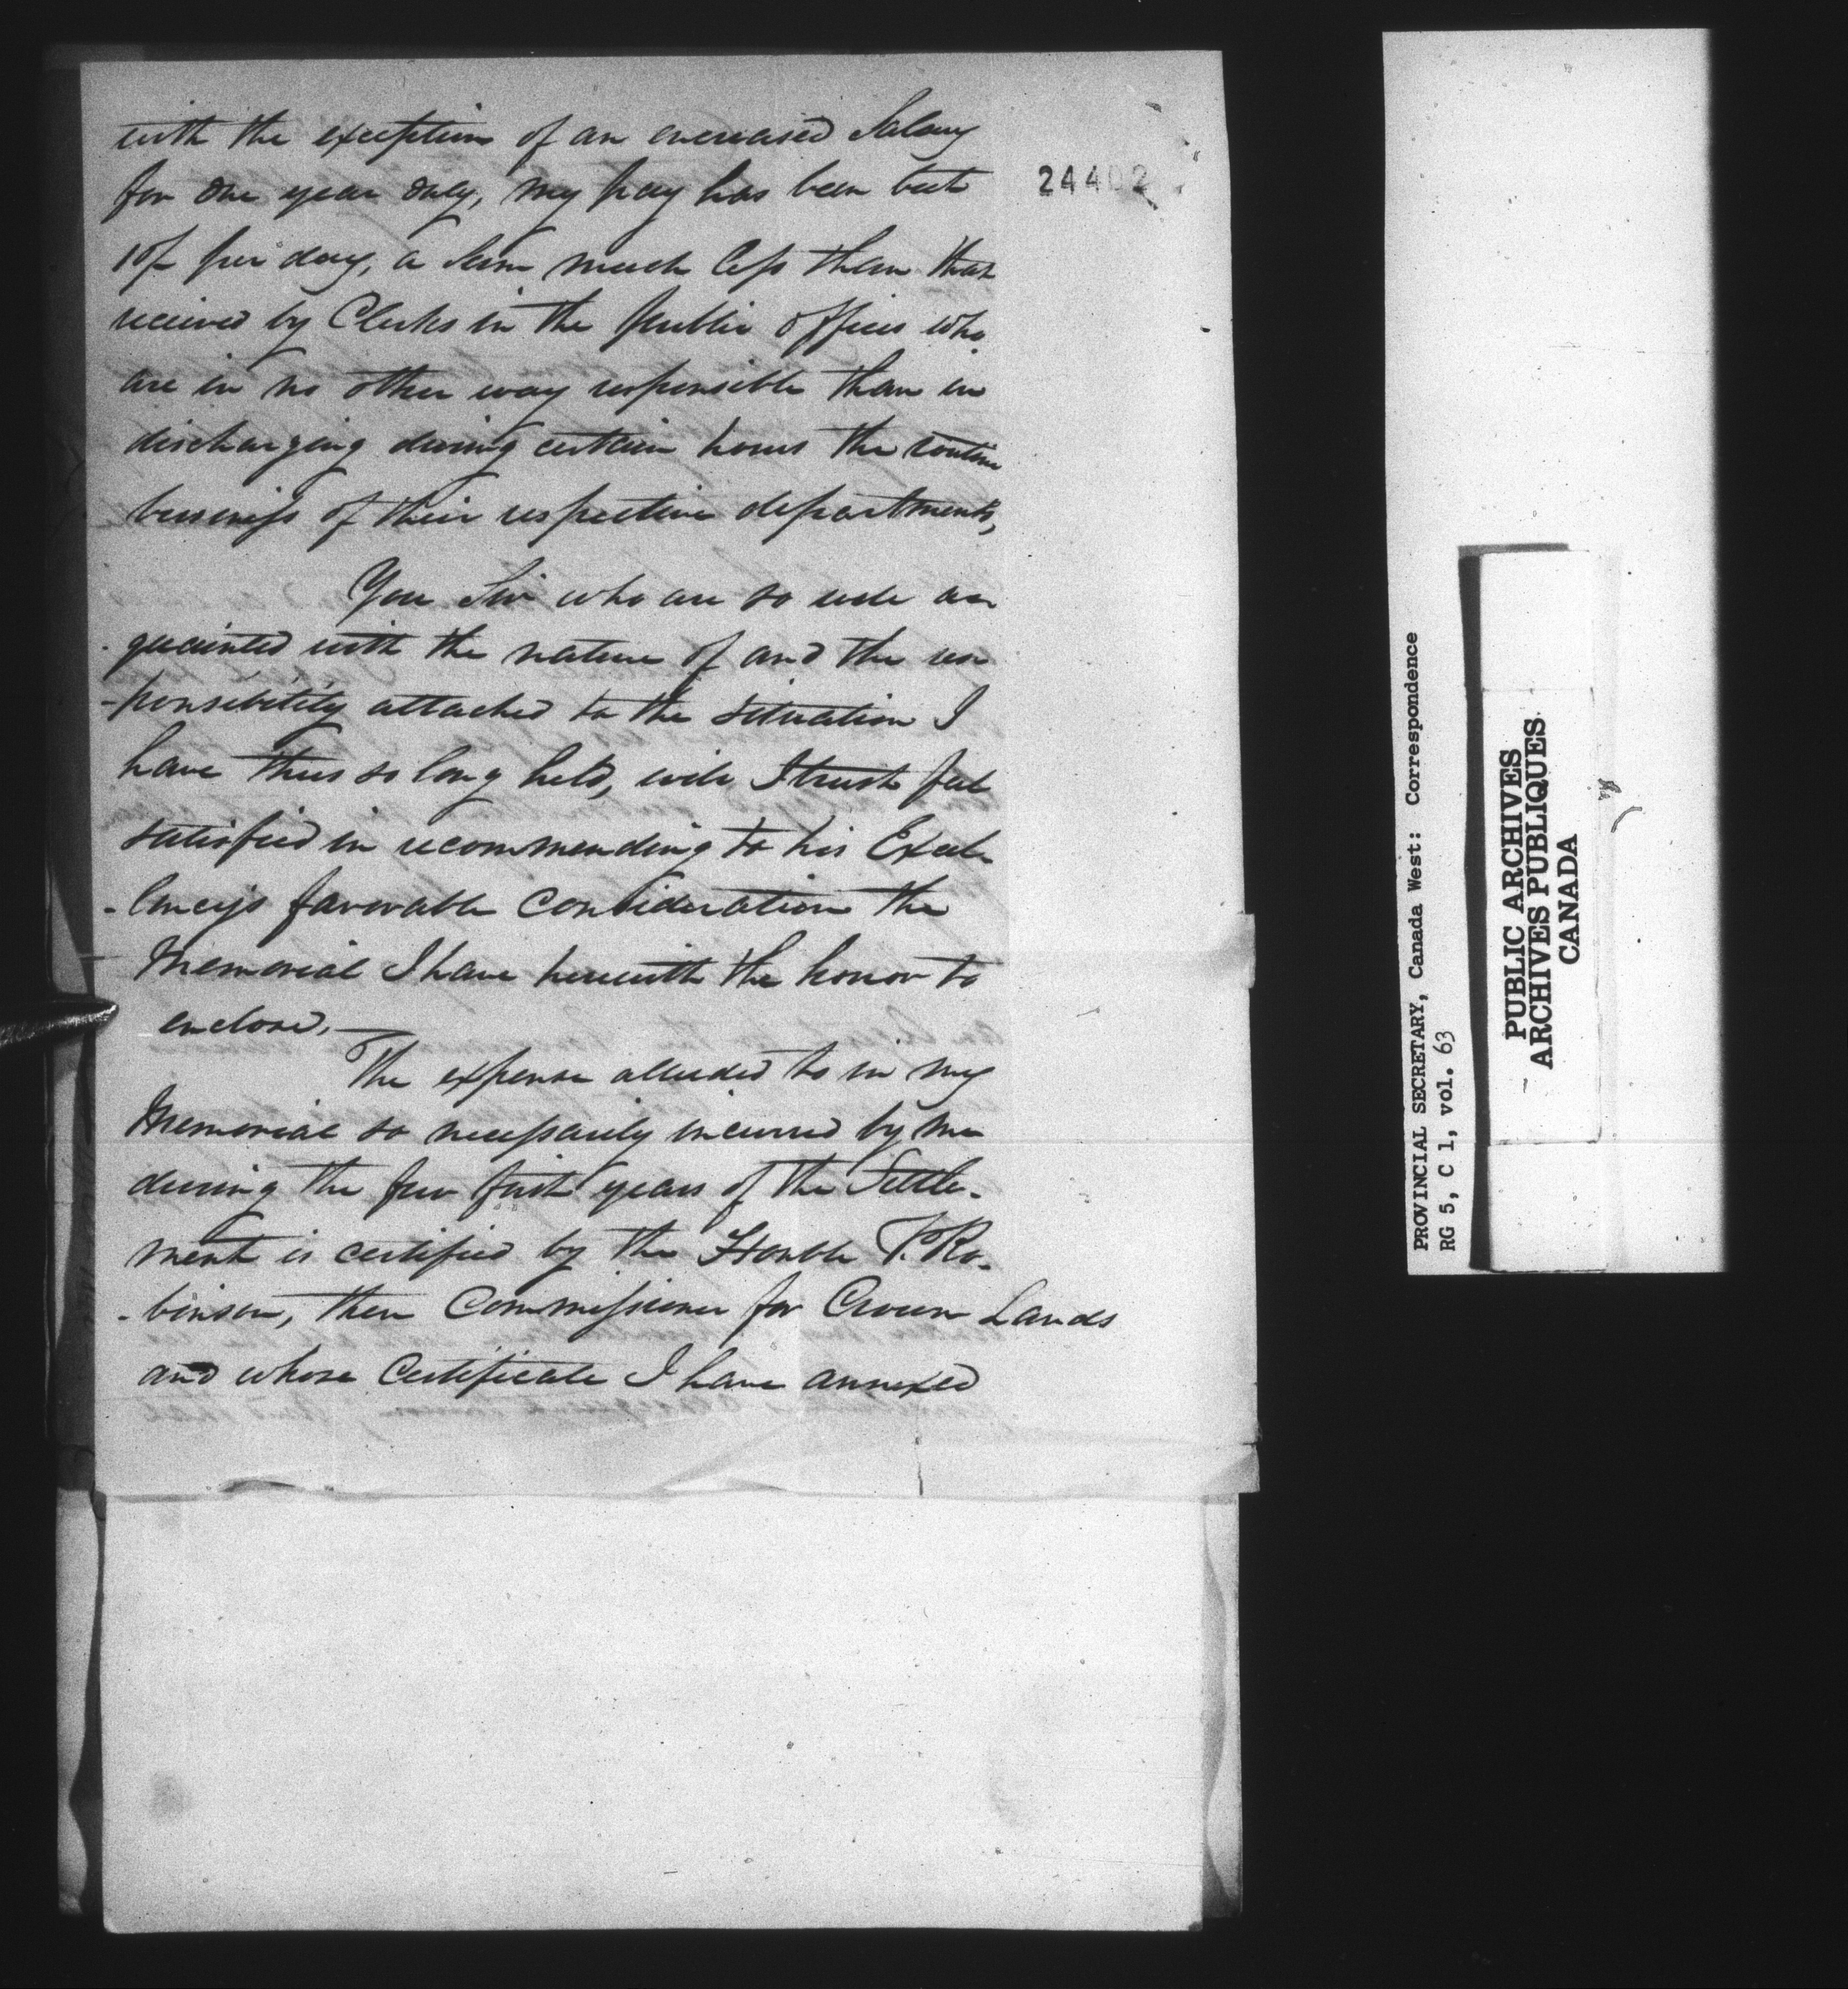 with the exception of an encreased Salary
for one year only, my pay has been but
10/- per day, a Sum much less than that
received by Clerks in the public offices who
are in no other way responsible than in
discharging during certain hours the routine
business of their respective departments,
You Sir who are so well ac
quainted with the nature of and the res
-ponsibility attached to the situation I
have thus so long held, will I trust feel
satisfied in recommending to his Excel-
-lency's favorable consideration the
Memorial I have herewith the honor to
enclose.—
The expense alluded to in my
Memorial so necessarily incurred by me
during the few first years of the Settle-
ment is certified by the Honble P. Ro-
-binson, then Commissioner for Crown Lands
and whose Certificate I have annexed
24402
PROVINCIAL SECRETARY, Canada West: Correspondence
RG 5, C 1, vol. 63
PUBLIC ARCHIVES
ARCHIVES PUBLIQUES
CANADA